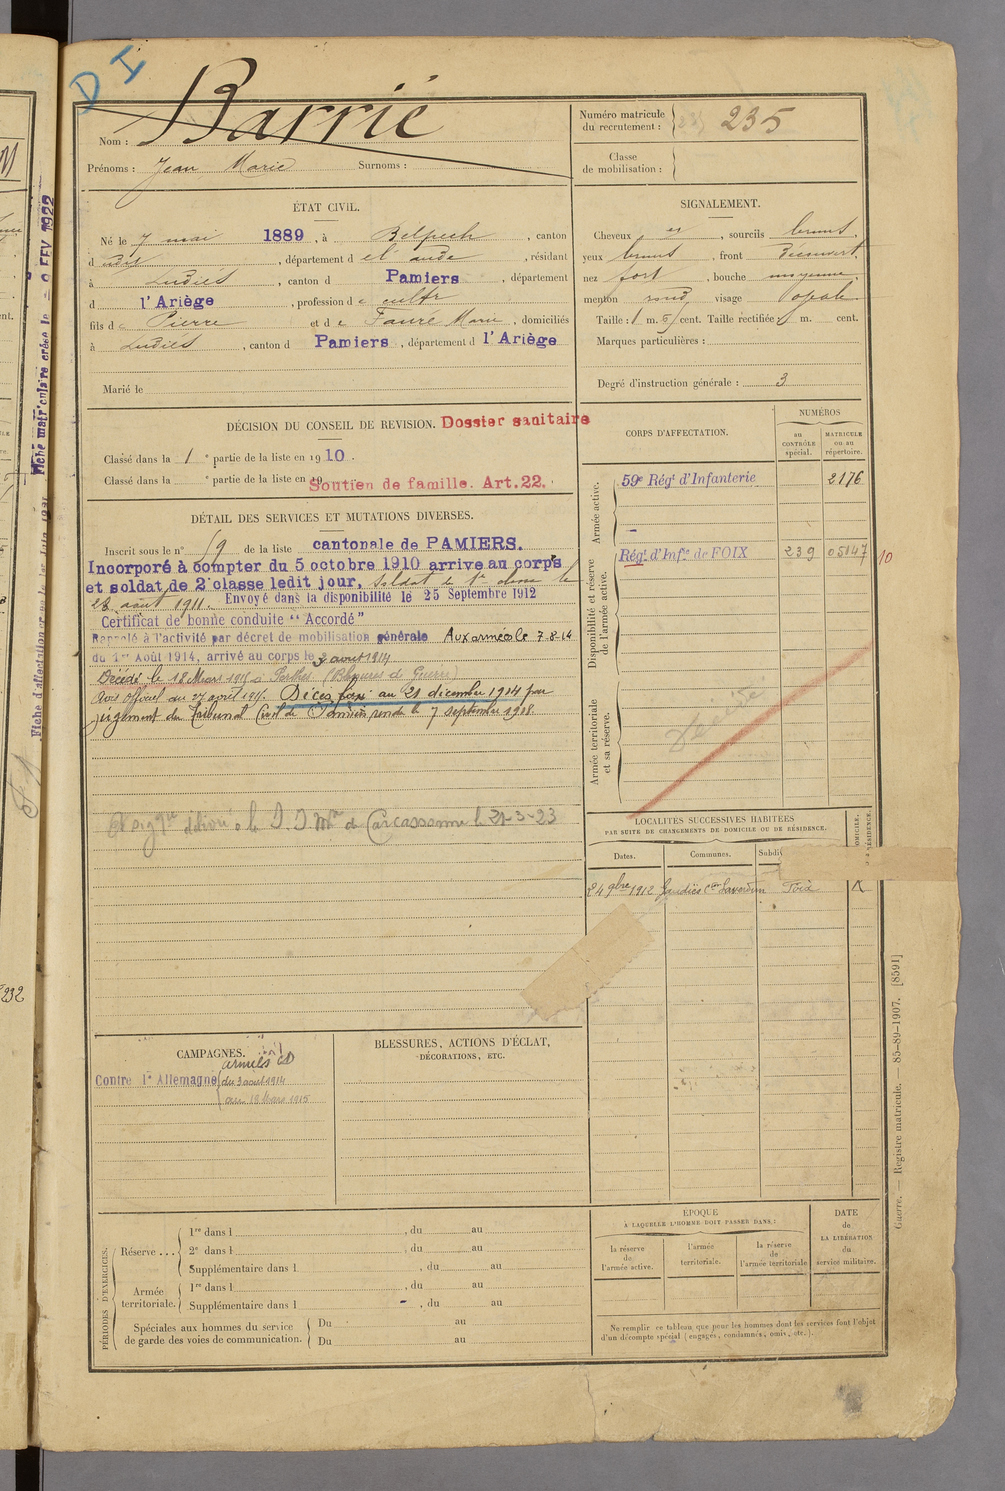 D I
Barrié
Nom :
Prénoms : Jean Marie Surnoms :
Numéro matricule
du recrutement : 235
Classe
de mobilisation :
ÉTAT CIVIL.
Né le 7 mai 1889, à Belpech, canton
dudit, département d el'aude, résidant
à Ludiès, canton d Pamiers, département
d l'Ariège, profession de cultr
fils de Pierre et de Faure Marie, domiciliés
à Ludiès, canton d Pamiers, département d l'Ariège
Marié le
SIGNALEMENT.
Cheveux et, sourcils bruns,
yeux bruns, front découvert,
nez fort, bouche moyenne,
menton rond, visage ovale
Taille : 1 m. cent. Taille rectifiée : m. cent.
Marques particulières :
Degré d'instruction générale : 3
DÉCISION DU CONSEIL DE REVISION. Dossier sanitaire
Classé dans la 1e partie de la liste en 1910.
Classé dans la e partie de la liste en 19
Soutien de famille. Art. 22.
CORPS D'AFFECTATION.
NUMÉROS
au
CONTRÔLE
spécial.
MATRICULE
ou au
répertoire.
Armée active.
59e Régt d'Infanterie 2176
Disponibilité et réserve
de l'armée active.
Régt d'Infie de FOIX 239 05147 10
Armée territoriale
et sa réserve.
DÉTAIL DES SERVICES ET MUTATIONS DIVERSES.
Inscrit sous le n° 59 de la liste cantonale de PAMIERS.
Incorporé à compter du 5 octobre 1910 arrivé au corps
et soldat de 2e classe ledit jour, Soldat de 1re classe le
28 août 1911. Envoyé dans la disponibilité le 25 Septembre 1912
Certificat de bonne conduite "Accordé"
Rappelé à l'activité par décret de mobilisation générale Aux armées le 7.8.14
du 1er Août 1914, arrivé au corps le 3 août 1914
Décédé le 18 Mars 1915 à Perthes (Blessures de Guerre)
Avis officiel du 27 avril 1915. Décès fixé au 21 décembre 1914 par
jugement du Tribunal Civil de Pamiers rendu le 7 septembre 1918.
délivré à le Carcassonne le 21-3-23
LOCALITÉS SUCCESSIVES HABITÉES
PAR SUITE DE CHANGEMENTS DE DOMICILE OU DE RÉSIDENCE.
Dates. Communes. Subdiv
24 9bre 1912 Gaudiès Con Saverdun Foix X
CAMPAGNES.
Contre l'Allemagne
armées CD
du 3 aout 1914
au 18 Mars 1915
BLESSURES, ACTIONS D'ÉCLAT,
DÉCORATIONS, ETC.
PÉRIODES D'EXERCICES.
Réserve ...
1re dans l , du au
2e dans l , du au
Supplémentaire dans l , du au
Armée
territoriale.
1re dans l , du au
Supplémentaire dans l , du au
Spéciales aux hommes du service
de garde des voies de communication.
Du au
Du au
ÉPOQUE
À LAQUELLE L'HOMME DOIT PASSER DANS :
la réserve
de
l'armée active.
l'armée
territoriale.
la réserve
de
l'armée territoriale
DATE
de
LA LIBÉRATION
du
service militaire.
Ne remplir ce tableau que pour les hommes dont les services font l'objet
d'un décompte spécial (engagés, condamnés, omis, etc.).
Guerre. — Registre matricule. — 85-89-1907. [8591]
232